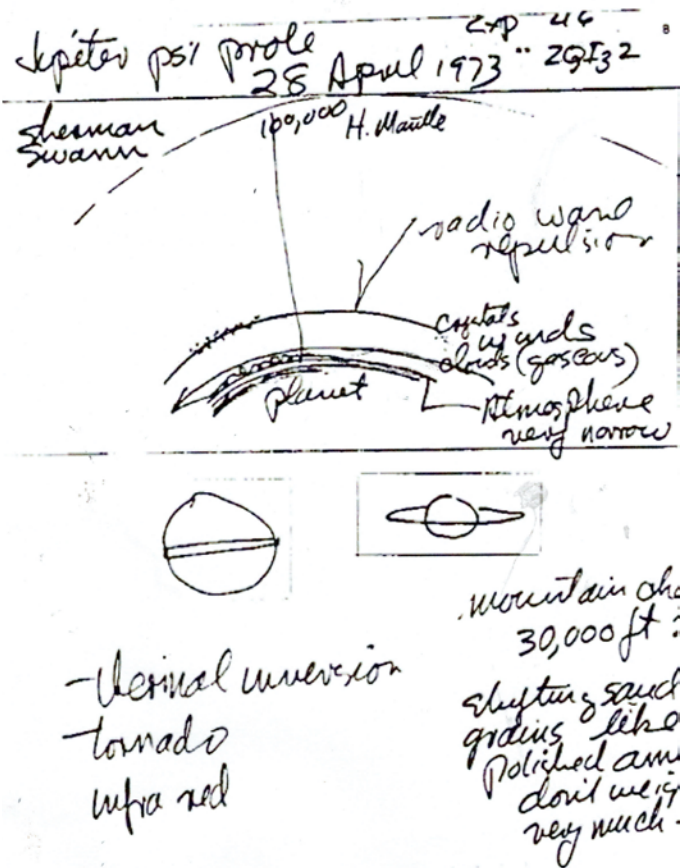 Jupiter psi probe
Exp 46
28 April 1973
8
Sherman
Swann
100,000 H. Mantle
radio wave
repulsion
crystals
winds
clouds (gaseous)
planet
Atmosphere
very narrow
mountain cha
30,000 ft
- thermal inversion
- tornado
infra red
shifting sand
grains like
polished am
don't weig
very much -